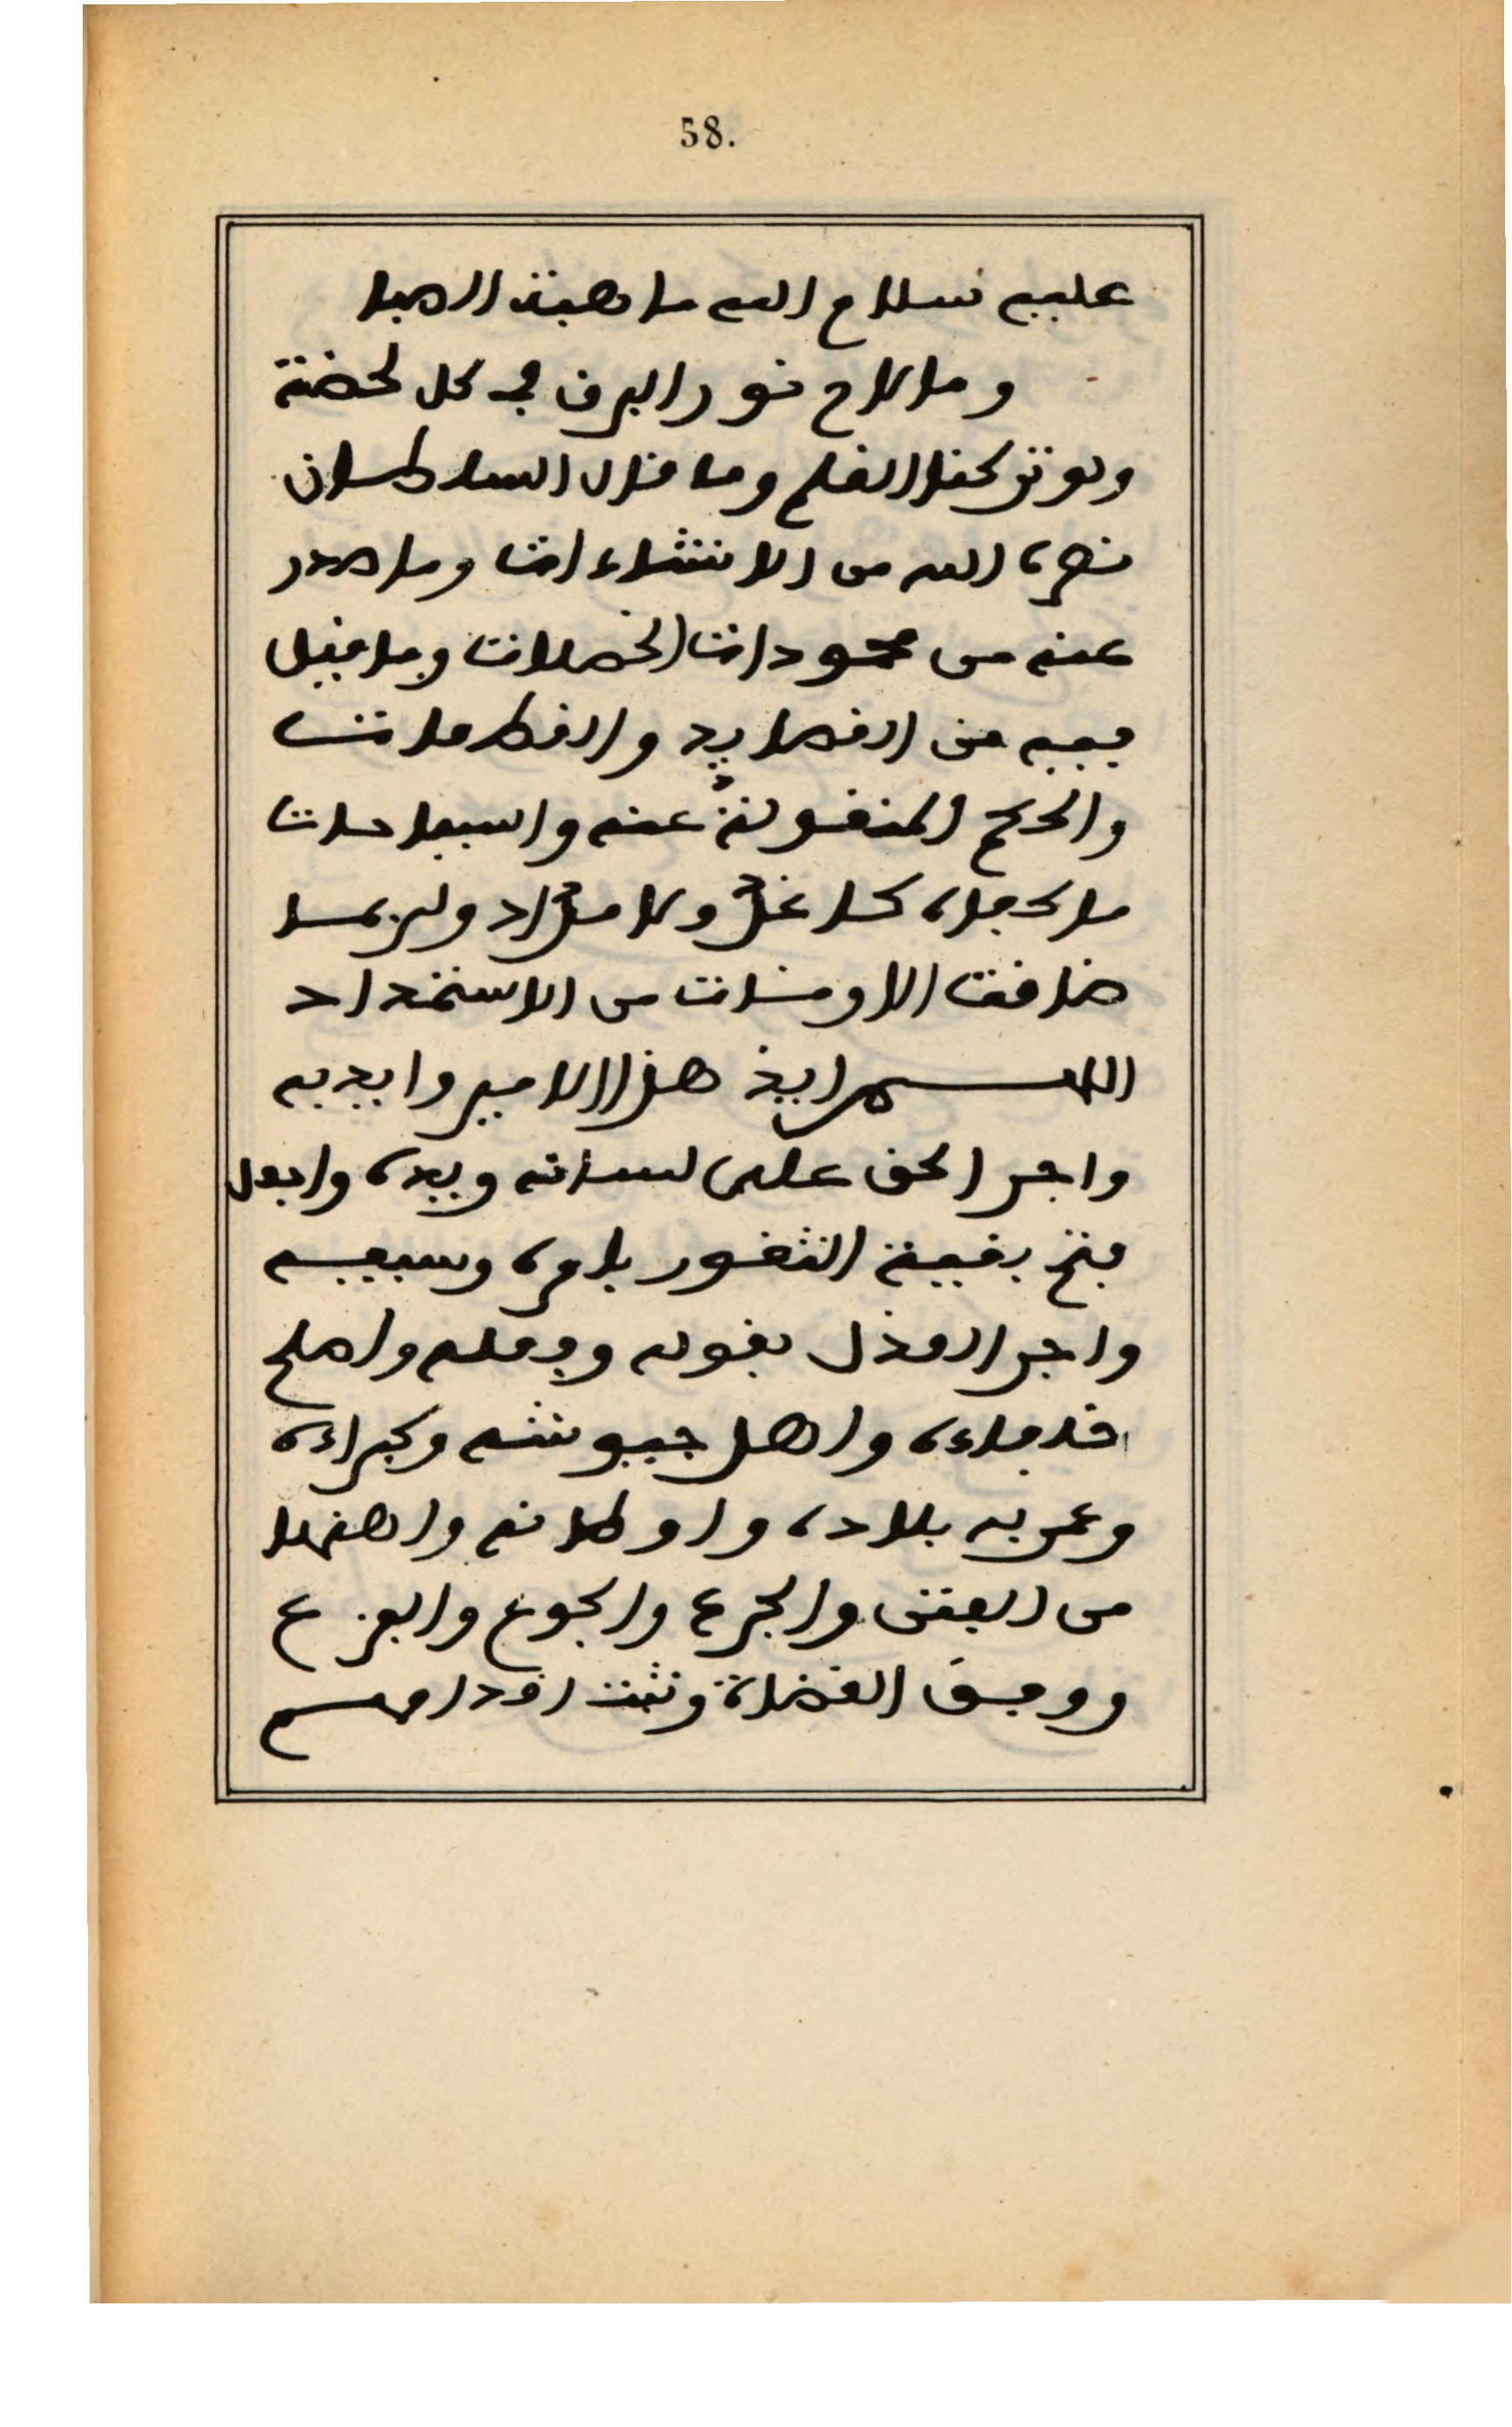 58.
عليه سلام الله ما هبت الصبا
وما لاح نور البرق في كل لحضة
ولو تركنا القلم وما قال السلطان
نصره الله من الانشاءات وما صدر
عنه من محمودات الخصلات وما قيل
فيه من القصايد والفكاهات
والحكم المنقولة عنه واسبابها
ضاقت الاوقات من الاستمداد
اللهم ايد هذا الامير وايد به
واجر الحق على لسانه ويده واجعل
فتح بقية الثغور بامره وسيفه
واجر العدل بقوله وفعله واصلح
خدماءه واهل جيوشه وكبراءه
وعمر به بلاده واوطانه واحفظها
من الفتن والجزع والجوع والفزع
ووفق القضاة وثبت اقدامهم